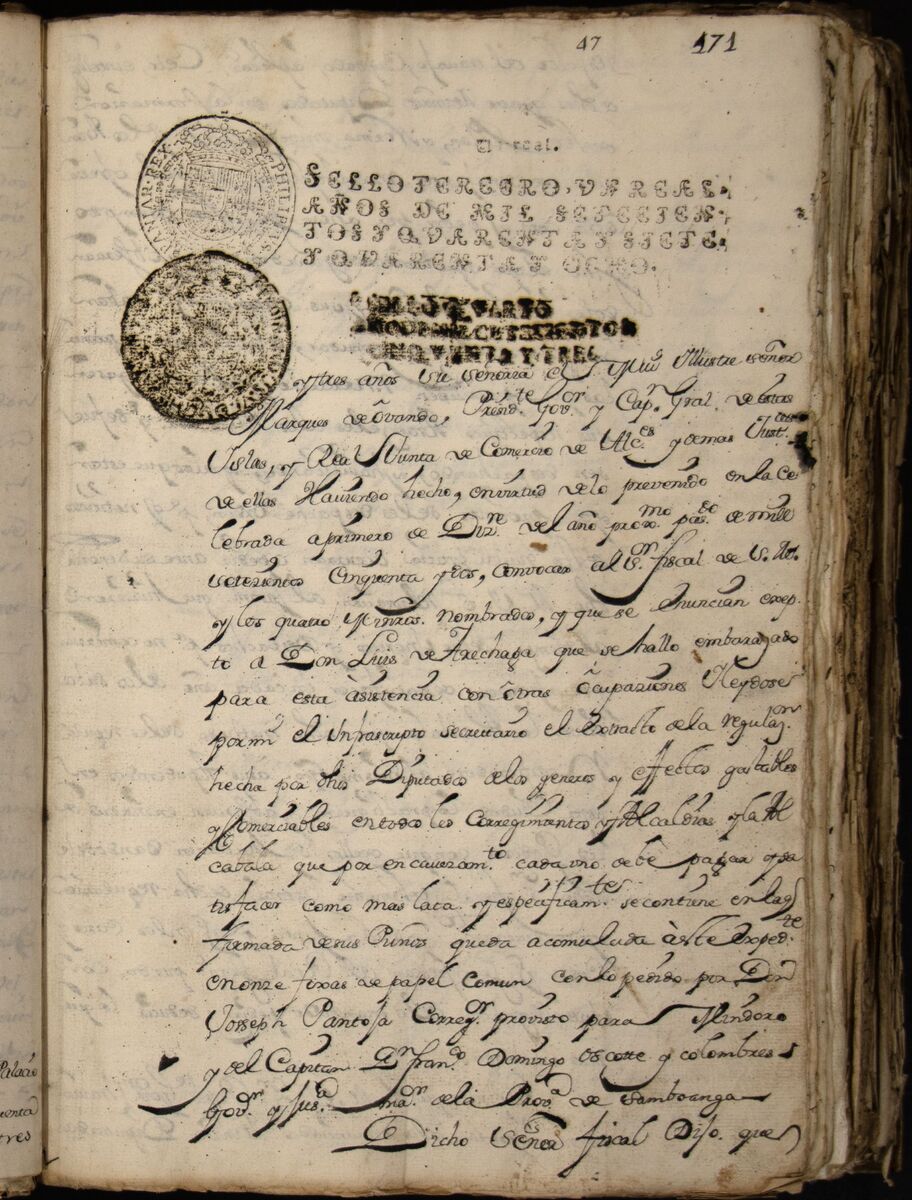 47 171
Un real.
SELLO TERCERO, UN REAL,
AÑOS DE MIL SETECIEN-
TOS Y QVARENTA Y SIETE,
Y QVARENTA Y OCHO.
SELLO QVARTO
AÑO DE MIL SETECIENTOS
CINQVENTA Y TRES
PHILIPUS REX
y tres años su señoria el Muy Illustre señor
Marques de Ovando, Presid.te Gov.or y Cap.n Gral. de estas
Yslas, y Real Junta de Comercio de Alc.es y demas Just.as
de ellas Haviendo hecho, en virtud de lo prevenido en la Ce
lebrada a primero de Diz.re del año prox.mo pas.do de mill
setezientos Cinquenta y dos, convocar al S.or fiscal de S. M.
y los quatro Minros. nombrados, y que se enuncian exep-
to a Don Luis de Arechaga que se hallo embarazado
para esta asistencia con otras ocupaziones Leydose
por mi el Infrascripto Secretario el extracto de la regulaz.on
hecha por dhos Diputados de los generos y effectos gastables
y Comerciables en todos los Corregimientos y Alcaldias y la Al
cabala que por encavezam.to cada vno debe pagar y sa
tisfacer como mas lata y especificam.te se contiene en la q
formada de sus Puños queda acomulada à este Exped.te
en onze foxas de papel comun con lo pedido por Don
Joseph Pantoja Correg.or provisto para Mindoro
y del Capitan D.n Fran.co Domingo Oscotte y Colombres
Gov.or y Jus.a ma.or de la Prov.a de Samboanga
Dicho Señor fiscal Dijo que
Palacio
uenta
tres